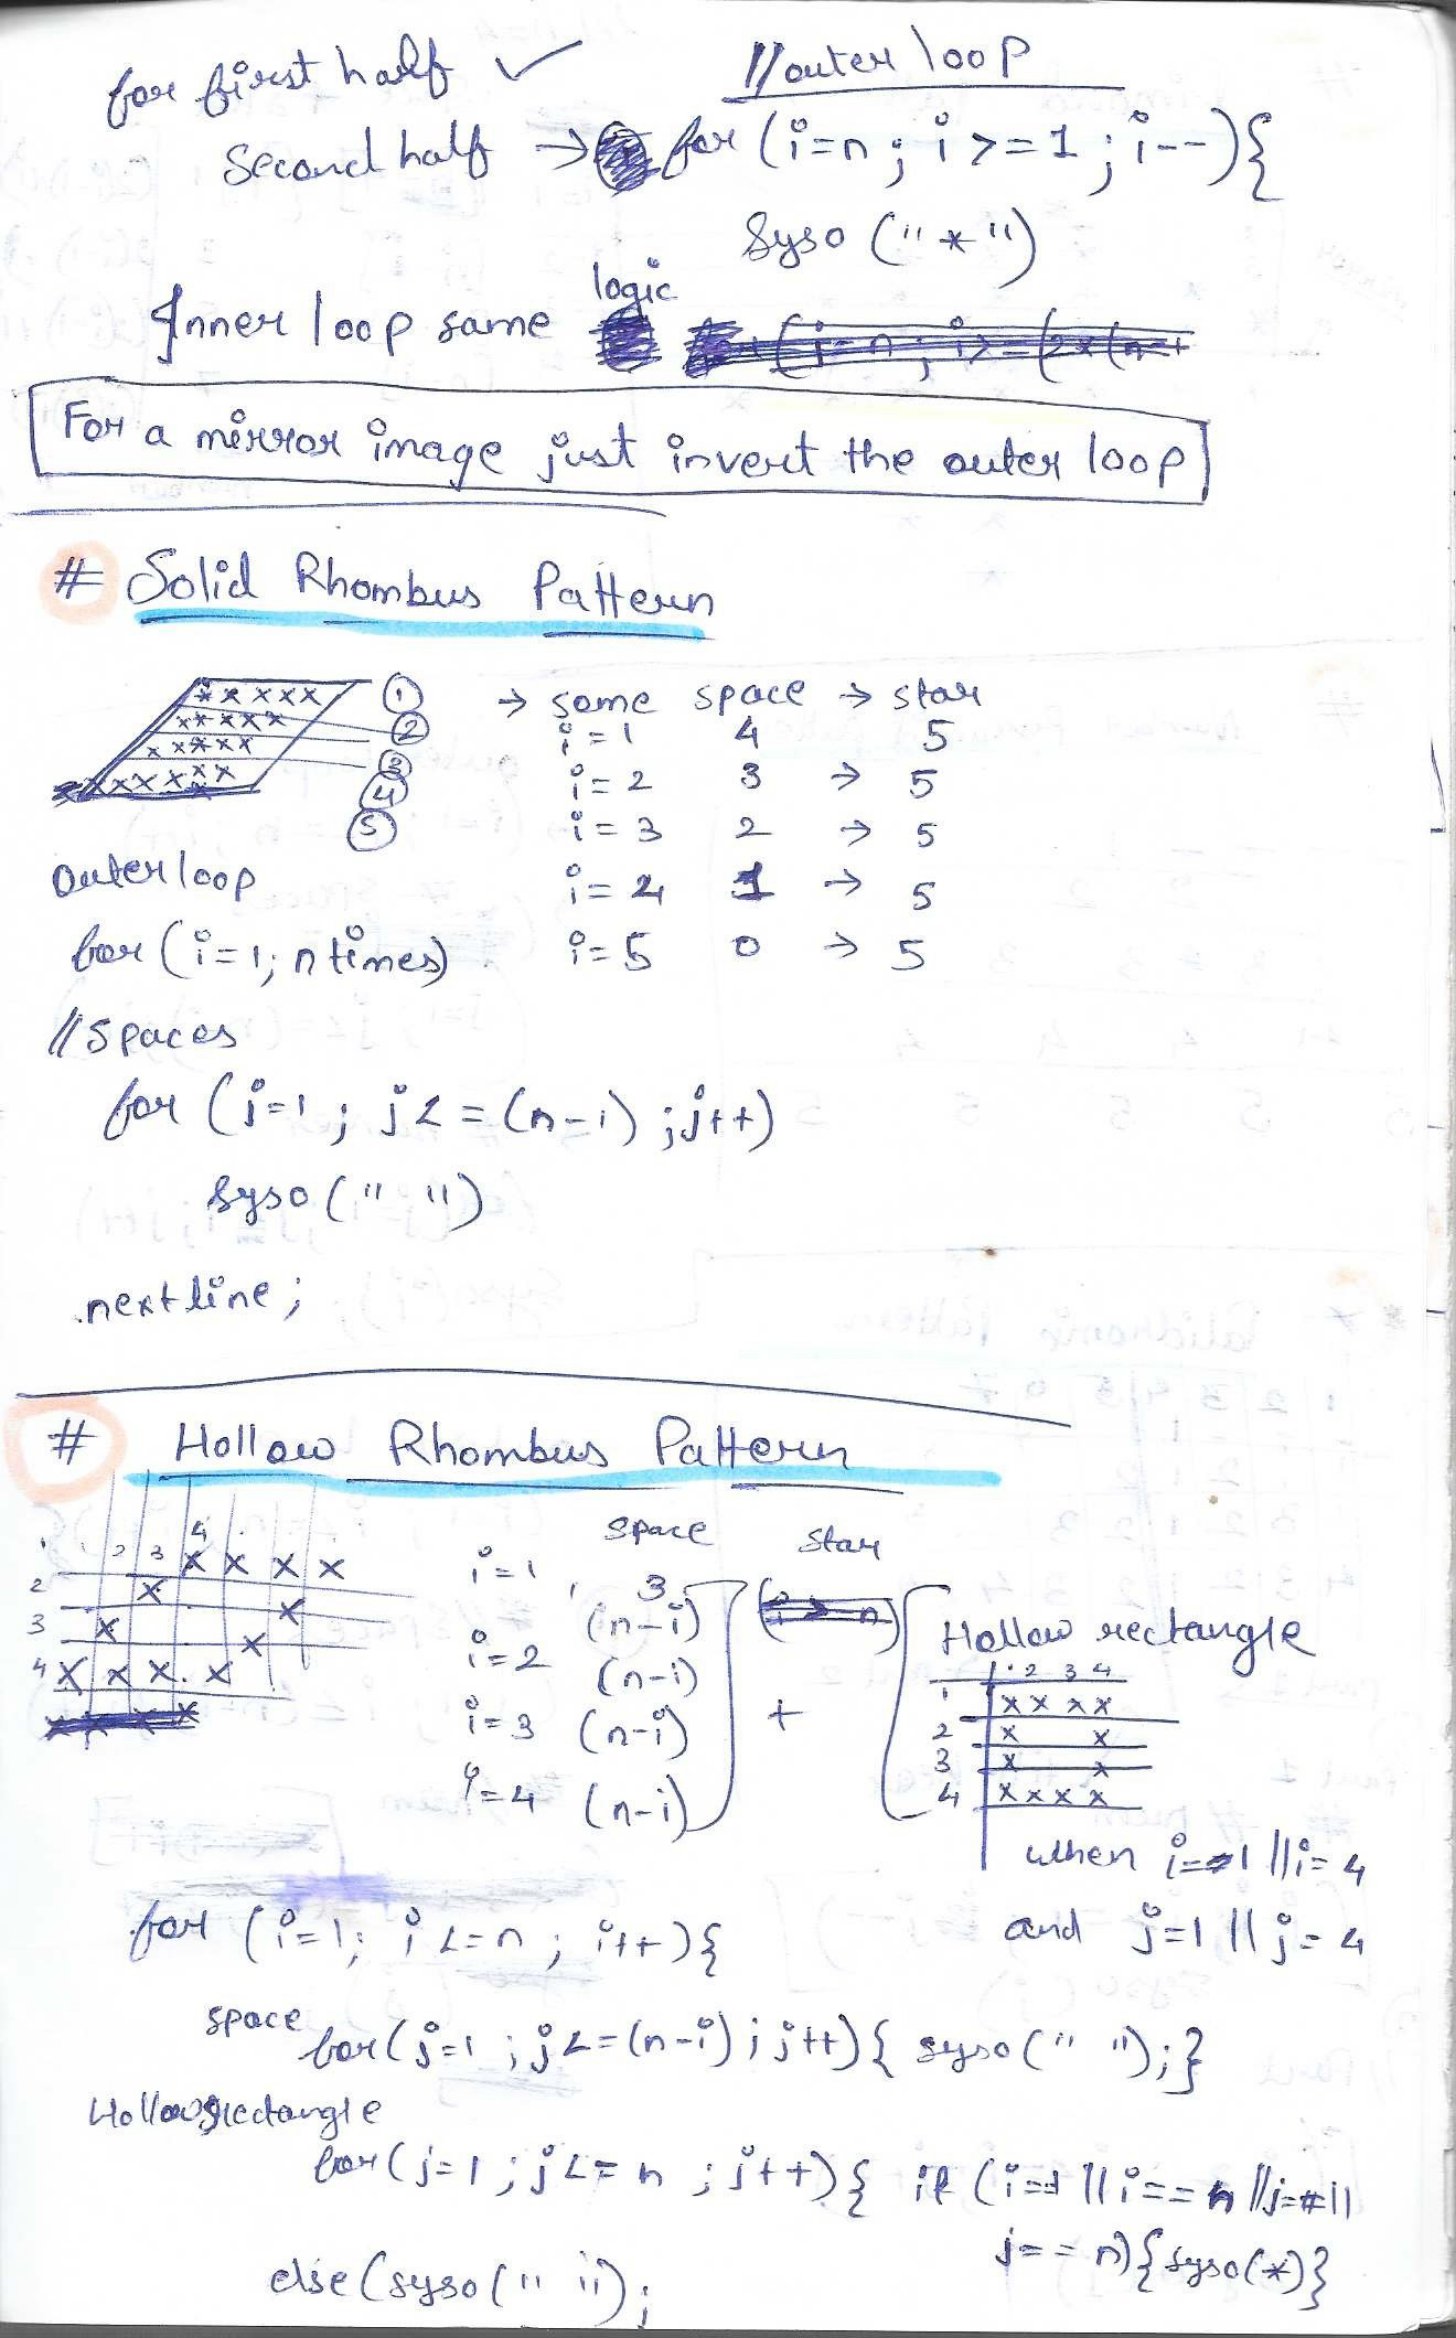 for first half ✓
//outer loop
Second half → for (i=n; i>=1; i--){
Syso ("*")
Inner loop same logic
For a mirror image just invert the outer loop
# Solid Rhombus Pattern
* * * * * ①
* * * * * ②
* * * * * ③
④
⑤
→ some space → star
i=1 4 5
i=2 3 → 5
i=3 2 → 5
i=4 1 → 5
i=5 0 → 5
Outer loop
for (i=1; n times)
//Spaces
for (j=1; j<=(n-i); j++)
Syso (" ")
next line;
# Hollow Rhombus Pattern
1 2 3 4
1 x x x x
2 x x
3 x x
4 x x x x
space star
i=1, 3
(n-i)
i=2 (n-i)
i=3 (n-i)
i=4 (n-i)
+
Hollow rectangle
1 2 3 4
1 x x x x
2 x x
3 x x
4 x x x x
when i=1 || i=4
and j=1 || j=4
for (i=1; i<=n; i++){
space for(j=1; j<=(n-i); j++){ syso(" ");}
Hollow rectangle
for(j=1; j<=n; j++){ if (i==1 || i==n || j==1 ||
j==n){syso(*)}
else(syso(" ");